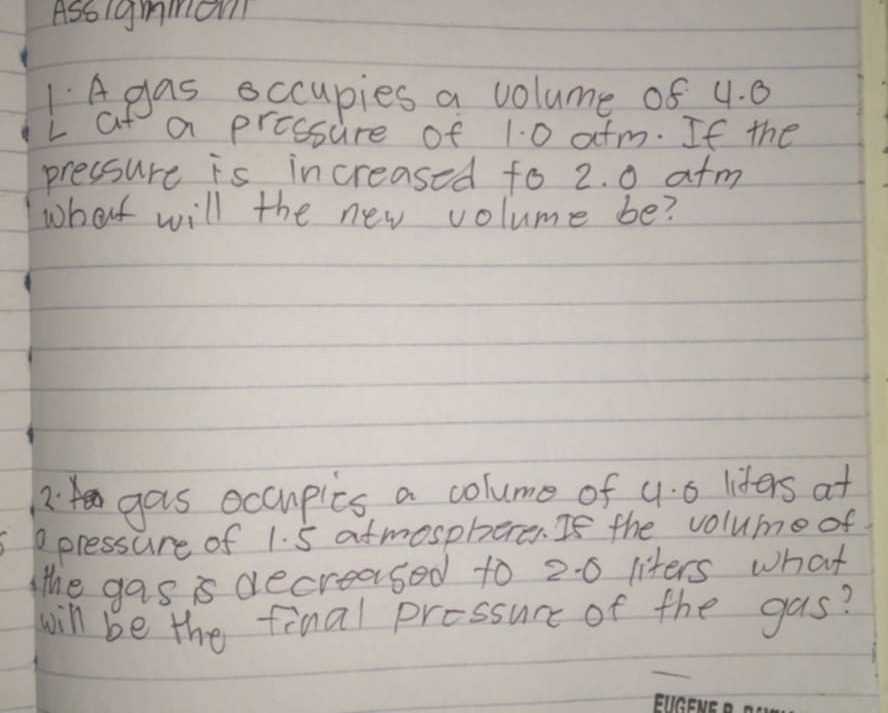 Assignment
1. A gas occupies a volume of 4.0
L at a pressure of 1.0 atm. If the
pressure is increased to 2.0 atm
what will the new volume be?
2. gas occupies a volume of 4.0 liters at
a pressure of 1.5 atmospheres. If the volume of
the gas is decreased to 2.0 liters what
will be the final pressure of the gas?
EUGENE